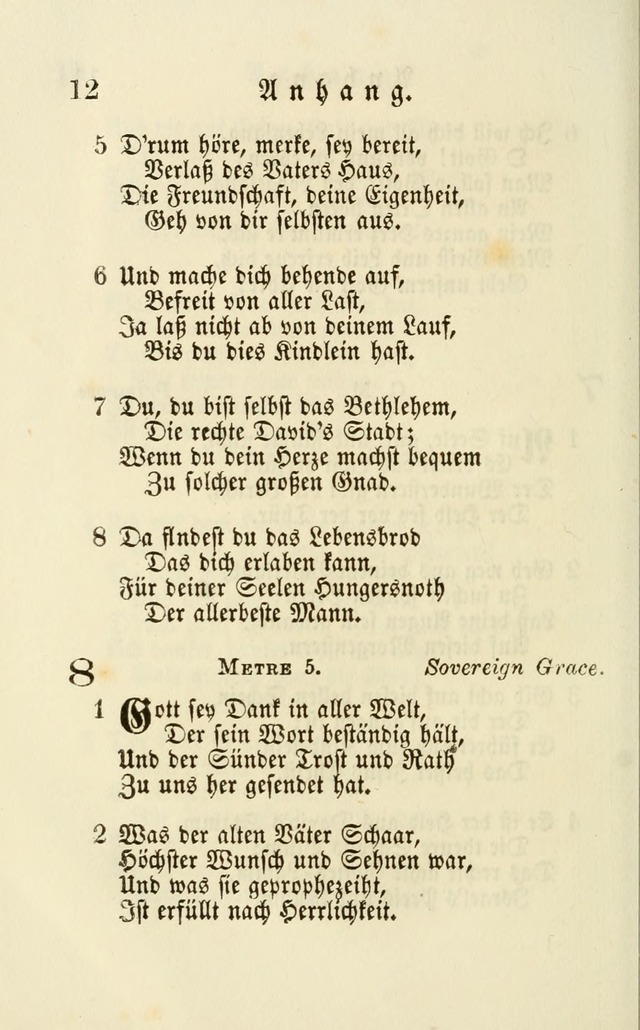 12 Anhang.
5 D'rum höre, merke, sey bereit,
Verlaß des Vaters Haus,
Die Freundschaft, deine Eigenheit,
Geh von dir selbsten aus.
6 Und mache dich behende auf,
Befreit von aller Last,
Ja laß nicht ab von deinem Lauf,
Bis du dies Kindlein hast.
7 Du, du bist selbst das Bethlehem,
Die rechte David's Stadt;
Wenn du dein Herze machst bequem
Zu solcher großen Gnad.
8 Da findest du das Lebensbrod
Das dich erlaben kann,
Für deiner Seelen Hungersnoth
Der allerbeste Mann.
8 Metre 5. Sovereign Grace.
1 Gott sey Dank in aller Welt,
Der sein Wort beständig hält,
Und der Sünder Trost und Rath
Zu uns her gesendet hat.
2 Was der alten Väter Schaar,
Höchster Wunsch und Sehnen war,
Und was sie geprophezeiht,
Ist erfüllt nach Herrlichkeit.